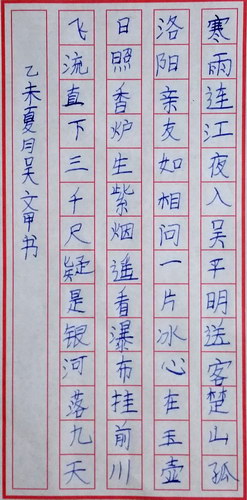 寒雨连江夜入吴平明送客楚山孤
洛阳亲友如相问一片冰心在玉壶
日照香炉生紫烟遥看瀑布挂前川
飞流直下三千尺疑是银河落九天
乙未夏月吴文甲书